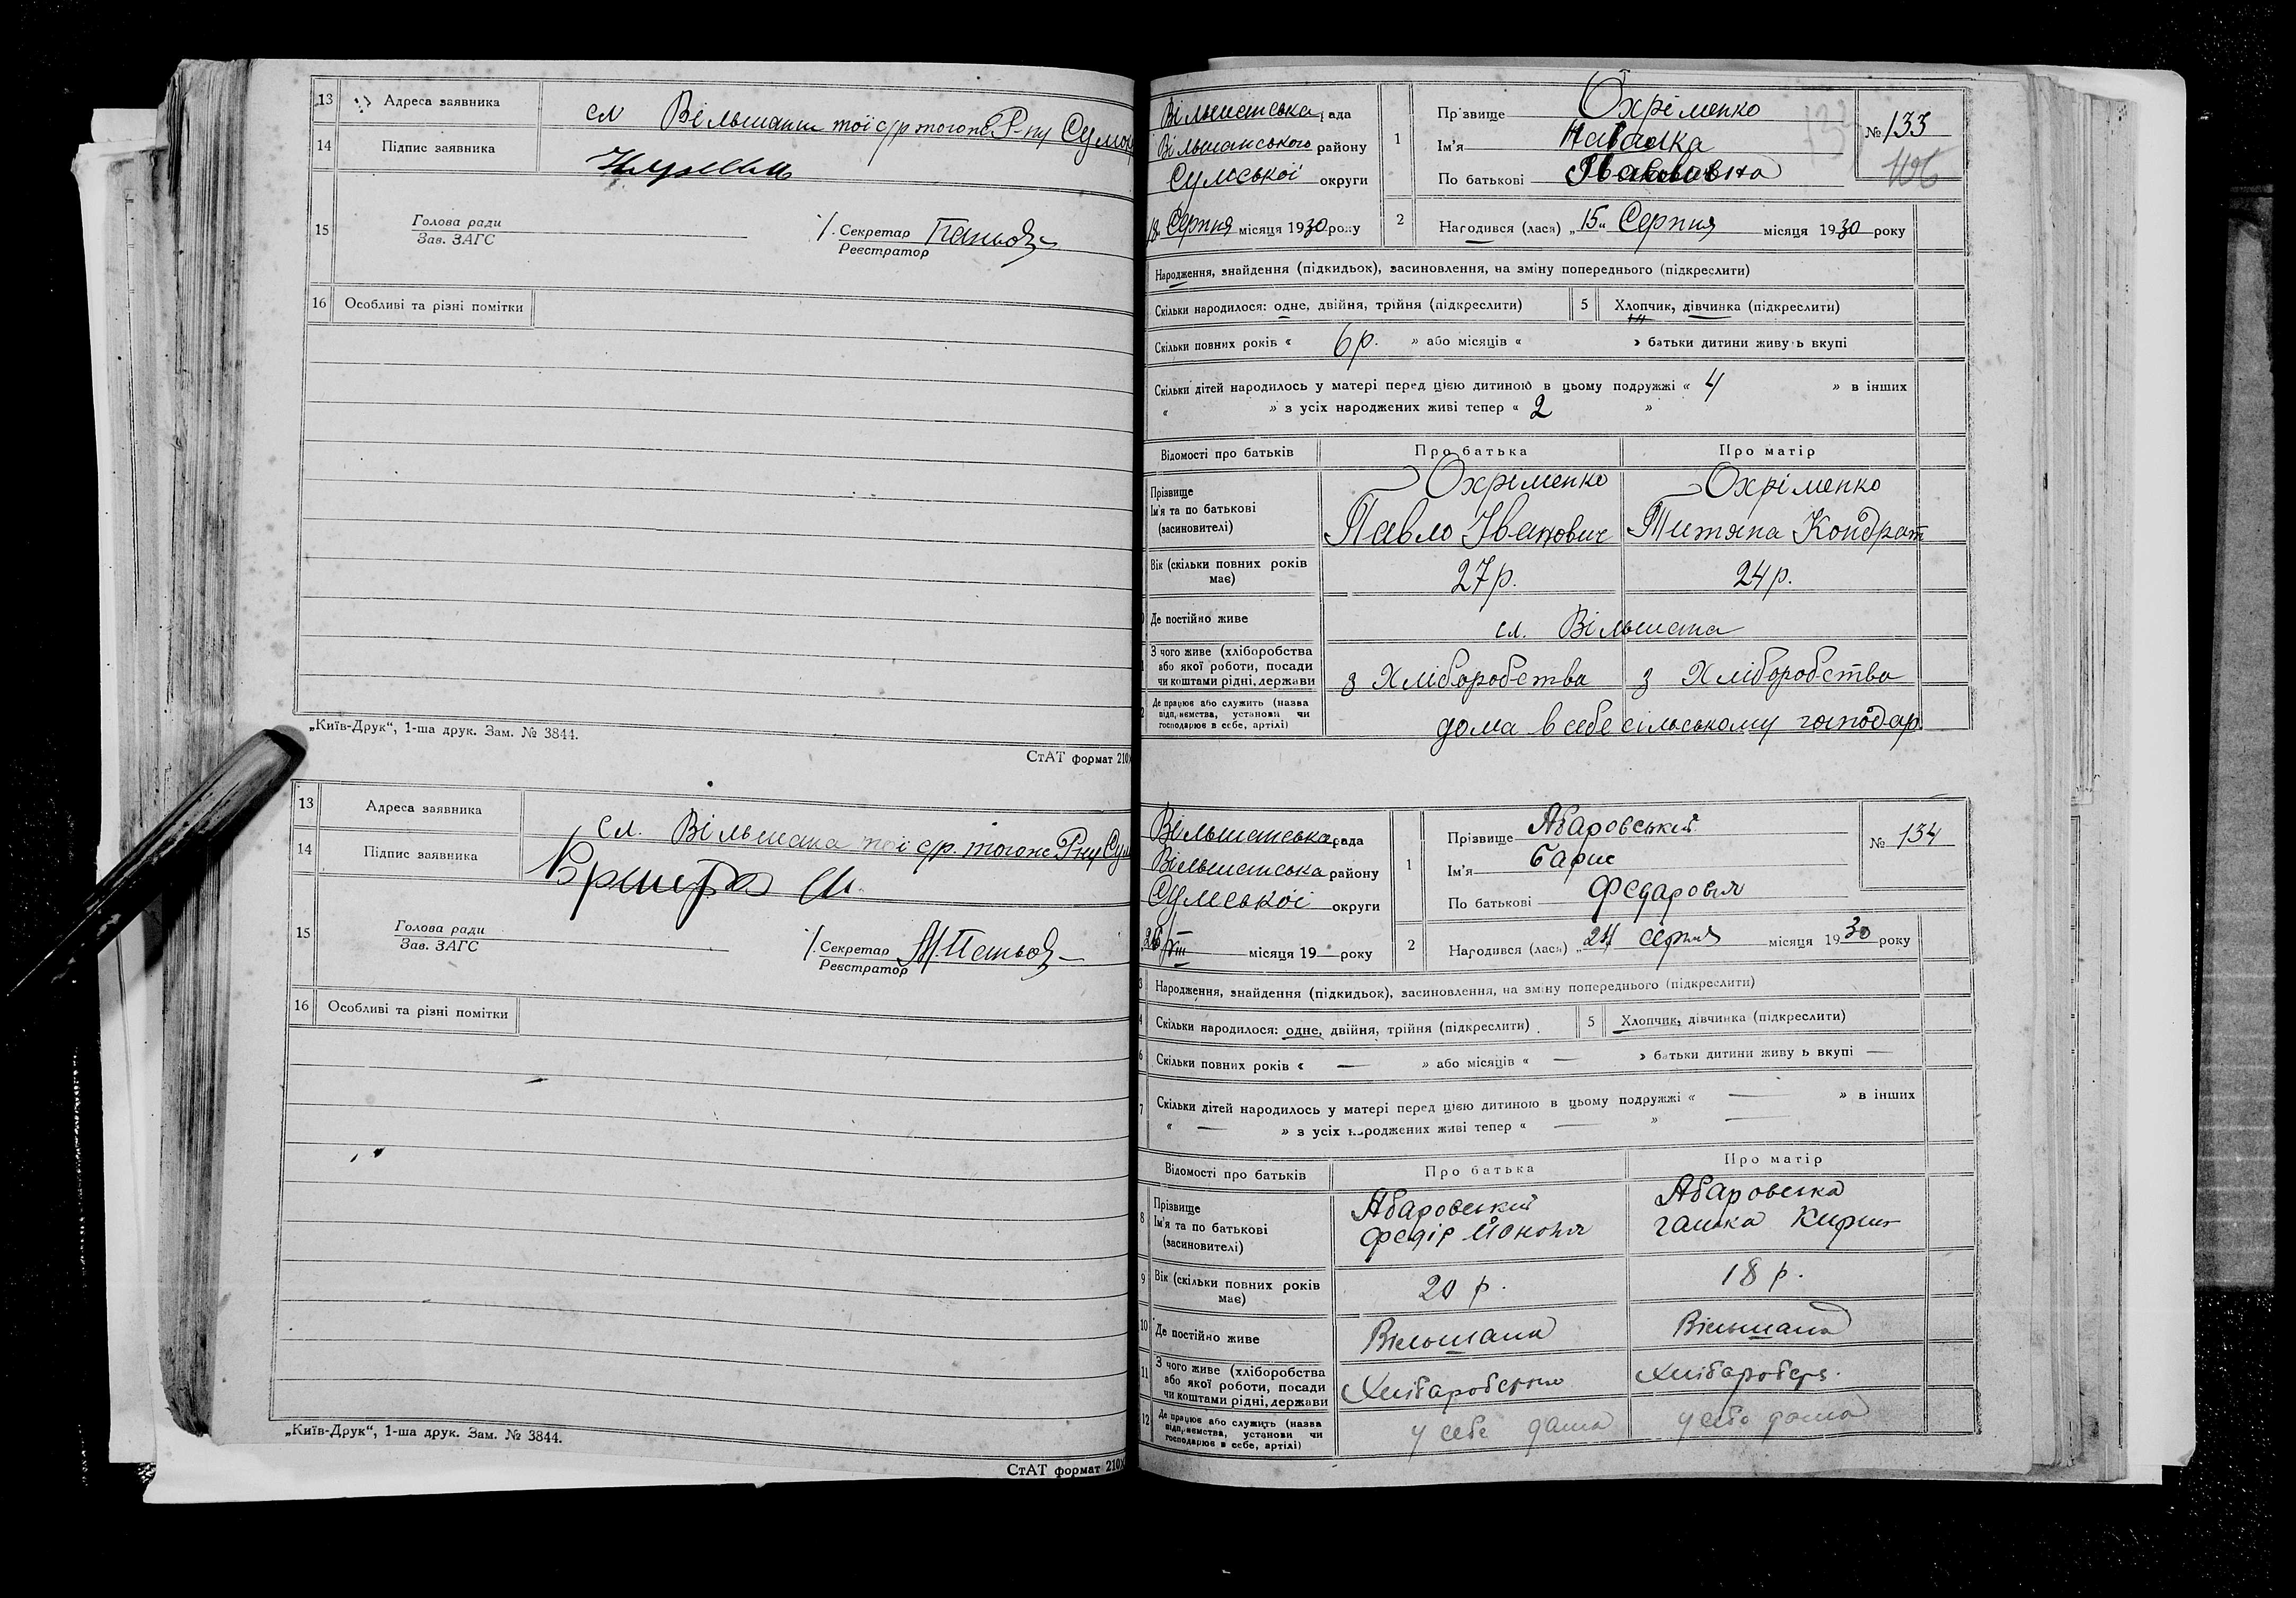 13 Адреса заявника сл Вільшани тої с/р тогож Р-ну
14 Підпис заявника
15 Голова ради
Зав. ЗАГС
Секретар
Реєстратор
16 Особливі та різні помітки
„Київ-Друк“, 1-ша друк. Зам. № 3844.
СтАТ формат 210
13 Адреса заявника сл. Вільшана тої с/р. тогож Р-ну
14 Підпис заявника
15 Голова ради
Зав. ЗАГС
Секретар
Реєстратор
16 Особливі та різні помітки
„Київ-Друк“, 1-ша друк. Зам. № 3844.
СтАТ формат 210
Вільшанська рада
Вільшанського району
Сумської округи
18 Серпня місяця 1930 року
1 Прізвище Охріменко
Ім'я
По батькові
№ 133
2 Народився (лася) „15“ Серпня місяця 1930 року
Народження, знайдення (підкидьок), засиновлення, на зміну попереднього (підкреслити)
Скільки народилося: одне, двійня, трійня (підкреслити) 5 Хлопчик, дівчинка (підкреслити)
Скільки повних років « 6 р. » або місяців « » батьки дитини живуть вкупі
Скільки дітей народилось у матері перед цією дитиною в цьому подружжі « 4 » в інших
« » з усіх народжених живі тепер « 2 »
Відомості про батьків Про батька Про матір
Прізвище Охріменко Охріменко
Ім'я та по батькові Павло Іванович Титяна Кондрат
(засиновителі)
Вік (скільки повних років має) 27 р. 24 р.
Де постійно живе сл. Вільшана
З чого живе (хліборобства
або якої роботи, посади
чи коштами рідні, держави з Хліборобства з Хліборобства
Де працює або служить (назва
підприємства, установи чи
господарює в себе, артілі) дома в себе сільському господар.
Вільшанська рада
Вільшанська району
Сумської округи
26/VIII місяця 19 року
1 Прізвище Абаровський
Ім'я Барис
По батькові Федарович
№ 134
2 Народився (лася) „24 серпня місяця 1930 року
3 Народження, знайдення (підкидьок), засиновлення, на зміну попереднього (підкреслити)
4 Скільки народилося: одне, двійня, трійня (підкреслити) 5 Хлопчик, дівчинка (підкреслити)
6 Скільки повних років « — » або місяців « — » батьки дитини живуть вкупі —
7 Скільки дітей народилось у матері перед цією дитиною в цьому подружжі « — » в інших
« — » з усіх народжених живі тепер « — » —
Відомості про батьків Про батька Про матір
8 Прізвище Абаровський Абаровська
Ім'я та по батькові Федір
(засиновителі)
9 Вік (скільки повних років має) 20 р. 18 р.
10 Де постійно живе Вільшана Вільшана
11 З чого живе (хліборобства
або якої роботи, посади
чи коштами рідні, держави
12 Де працює або служить (назва
підприємства, установи чи
господарює в себе, артілі) у себе дома у себе дома